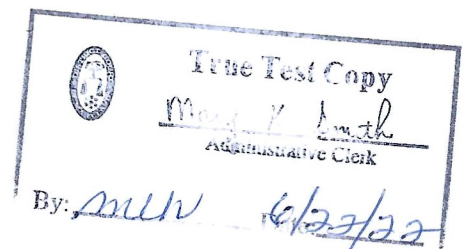 True Test Copy
Smith
Administrative Clerk
By: 6/22/22